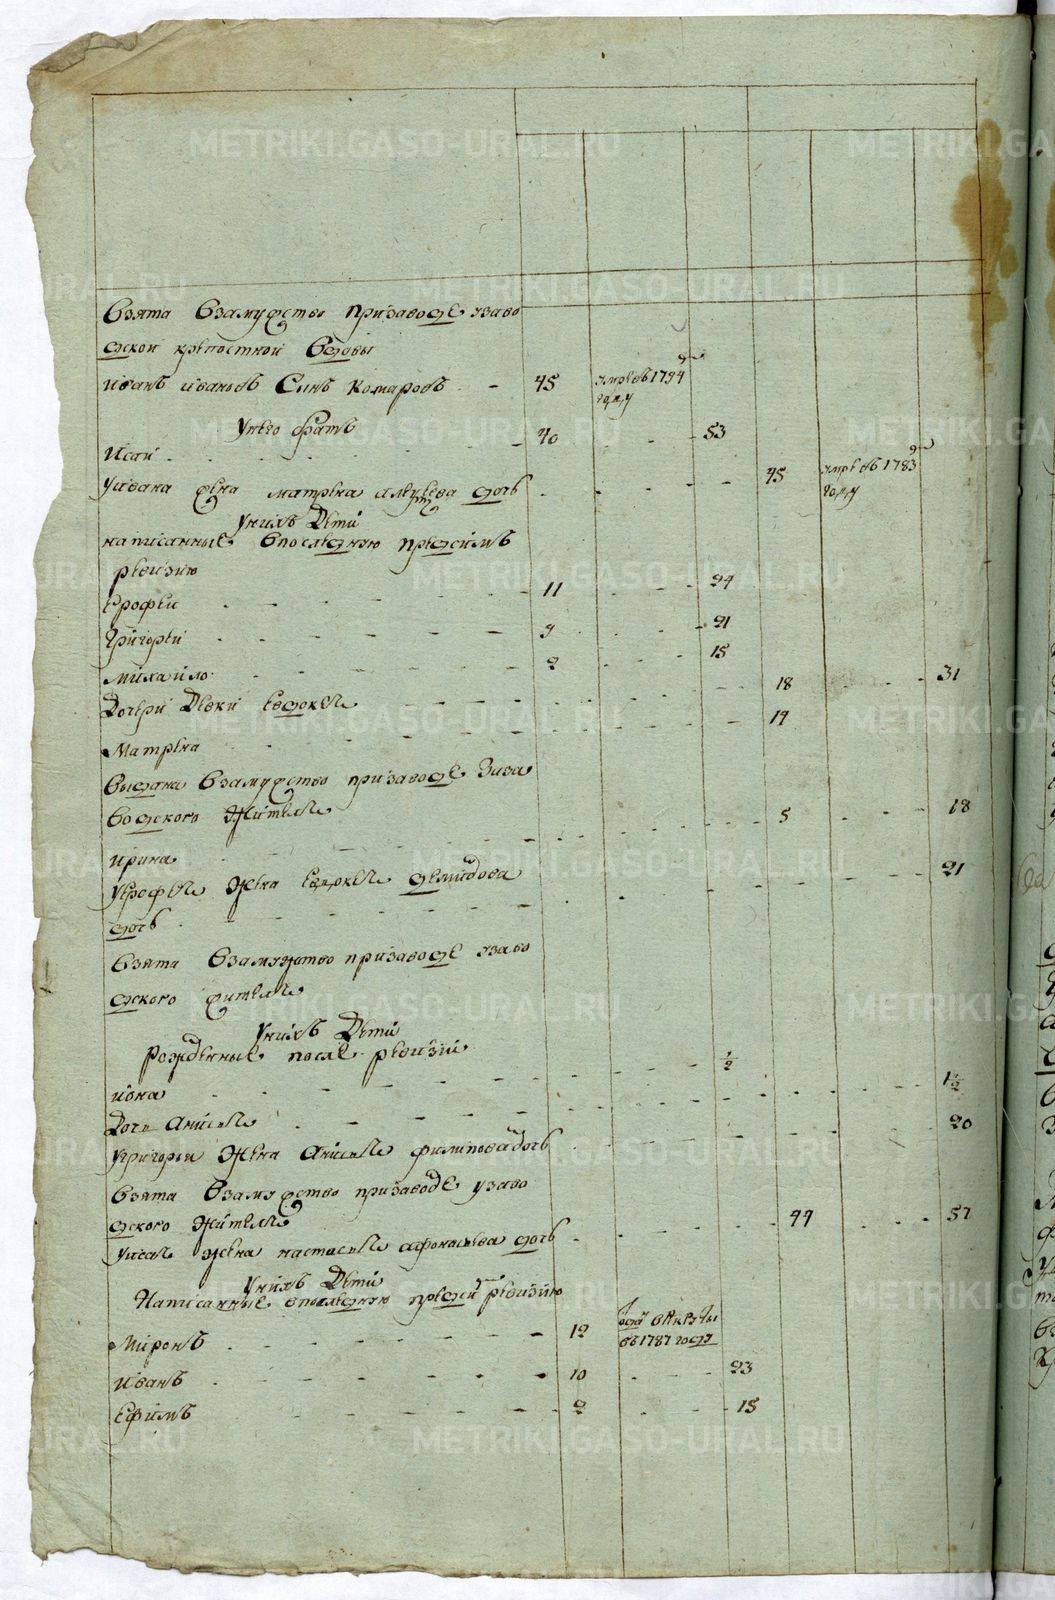 взята взамужство призаводе узаво
дской крепостной вдовы
иванъ ивановъ сынъ комаровъ - 45 умре въ 1794 го году
унего братъ
исаи 40 53
уивана жена матрена дочь 45 умре въ 1783 го году
унихъ дети
написанные впоследнюю пред симъ
ревизию
ерофеи 11 24
григореи 9 21
михаило 2 15
дочери девки евдокея 18 31
матрена 14
выдана взамужство призаводе заза
водского жителя
ирина 5 18
уерофея жена евдокея демидова 21
дочь
взята взамужство призаводе узаво
дского жителя
унихъ дети
рожденные после ревизии
иона 1/2
дочь анисья 1 1/2
угригорья жена анисья филипова дочь 20
взята взамужство призаводе узаво
дского жителя
уисая жена настасья афонасьева дочь 44 57
унихъ дети
написанные впоследнюю пред сей ревизию
миронъ 12 отданъ в рекруты въ 1787 году
иванъ 10 23
ефимъ 2 15
METRIKI.GASO-URAL.RU